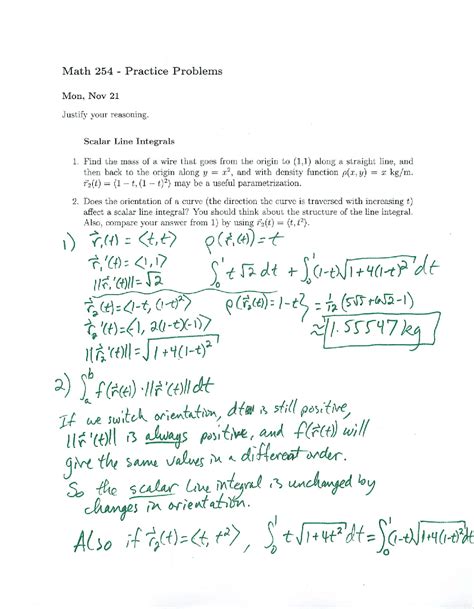 Math 254 - Practice Problems
Mon, Nov 21
Justify your reasoning.
Scalar Line Integrals
1. Find the mass of a wire that goes from the origin to (1,1) along a straight line, and
then back to the origin along y = x², and with density function ρ(x, y) = x kg/m.
r⃗₂(t) = ⟨1 − t, (1 − t)²⟩ may be a useful parametrization.
2. Does the orientation of a curve (the direction the curve is traversed with increasing t)
affect a scalar line integral? You should think about the structure of the line integral.
Also, compare your answer from 1) by using r⃗₂(t) = ⟨t, t²⟩.
1) r⃗₁(t) = ⟨t, t⟩ ρ(r⃗₁(t)) = t
r⃗₁'(t) = ⟨1, 1⟩
||r⃗₁'(t)|| = √2
∫₀¹ t√2 dt + ∫₀¹ (1-t)√(1+4(1-t)²) dt
r⃗₂(t) = ⟨1-t, (1-t)²⟩ ρ(r⃗₂(t)) = 1-t
= 1/12 (5√5 + 6√2 - 1)
r⃗₂'(t) = ⟨-1, 2(1-t)(-1)⟩
≈ 1.55547 kg
||r⃗₂'(t)|| = √(1+4(1-t)²)
2) ∫ₐᵇ f(r⃗(t)) · ||r⃗'(t)|| dt
If we switch orientation, dt is still positive,
||r⃗'(t)|| is always positive, and f(r⃗(t)) will
give the same values in a different order.
So the scalar line integral is unchanged by
changes in orientation.
Also if r⃗₂(t) = ⟨t, t²⟩, ∫₀¹ t√(1+4t²) dt = ∫₀¹ (1-t)√(1+4(1-t)²) dt